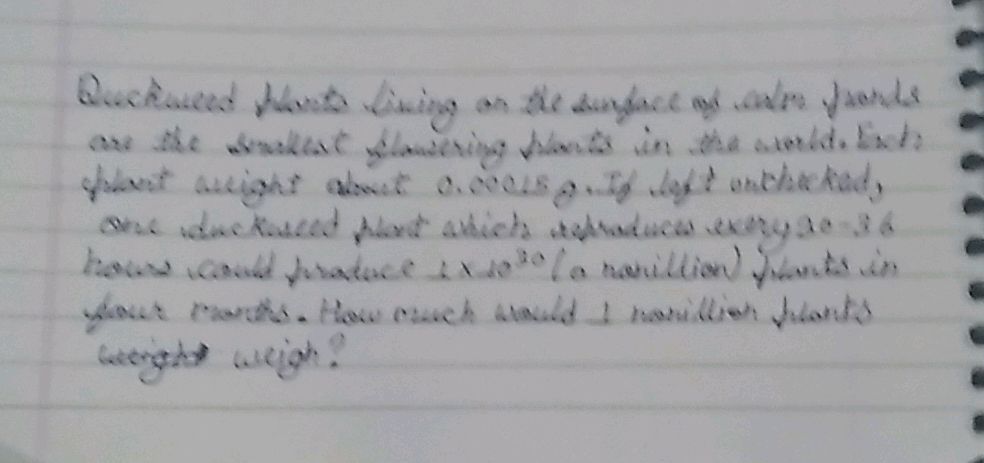 Duckweed plants living on the surface of calm ponds
are the smallest flowering plants in the world. Each
plant weight about 0.00015 g. If left unchecked,
one duckweed plant which reproduces every 30-36
hours could produce 1 x 10³⁰ (a nonillion) plants in
four months. How much would 1 nonillion plants
weigh?